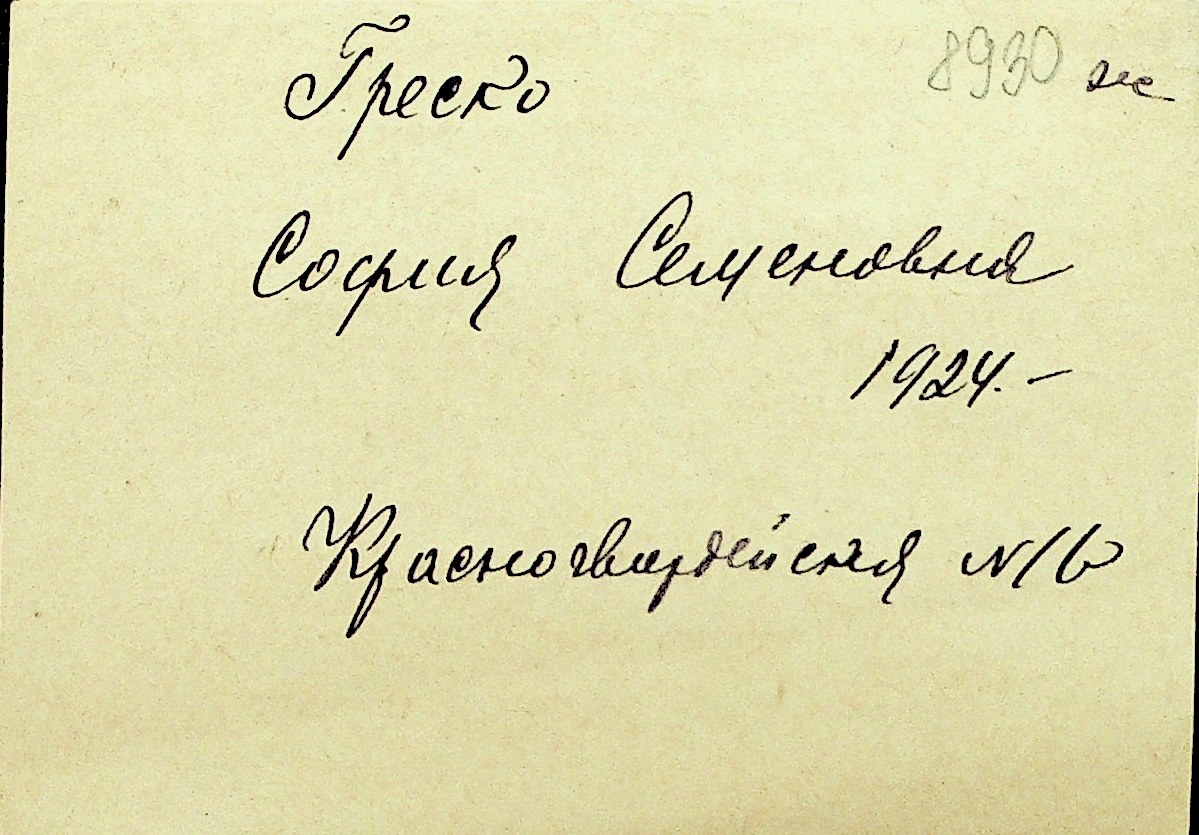 Греско 8930
София Семеновна
1924.-
Красногвардейская N16